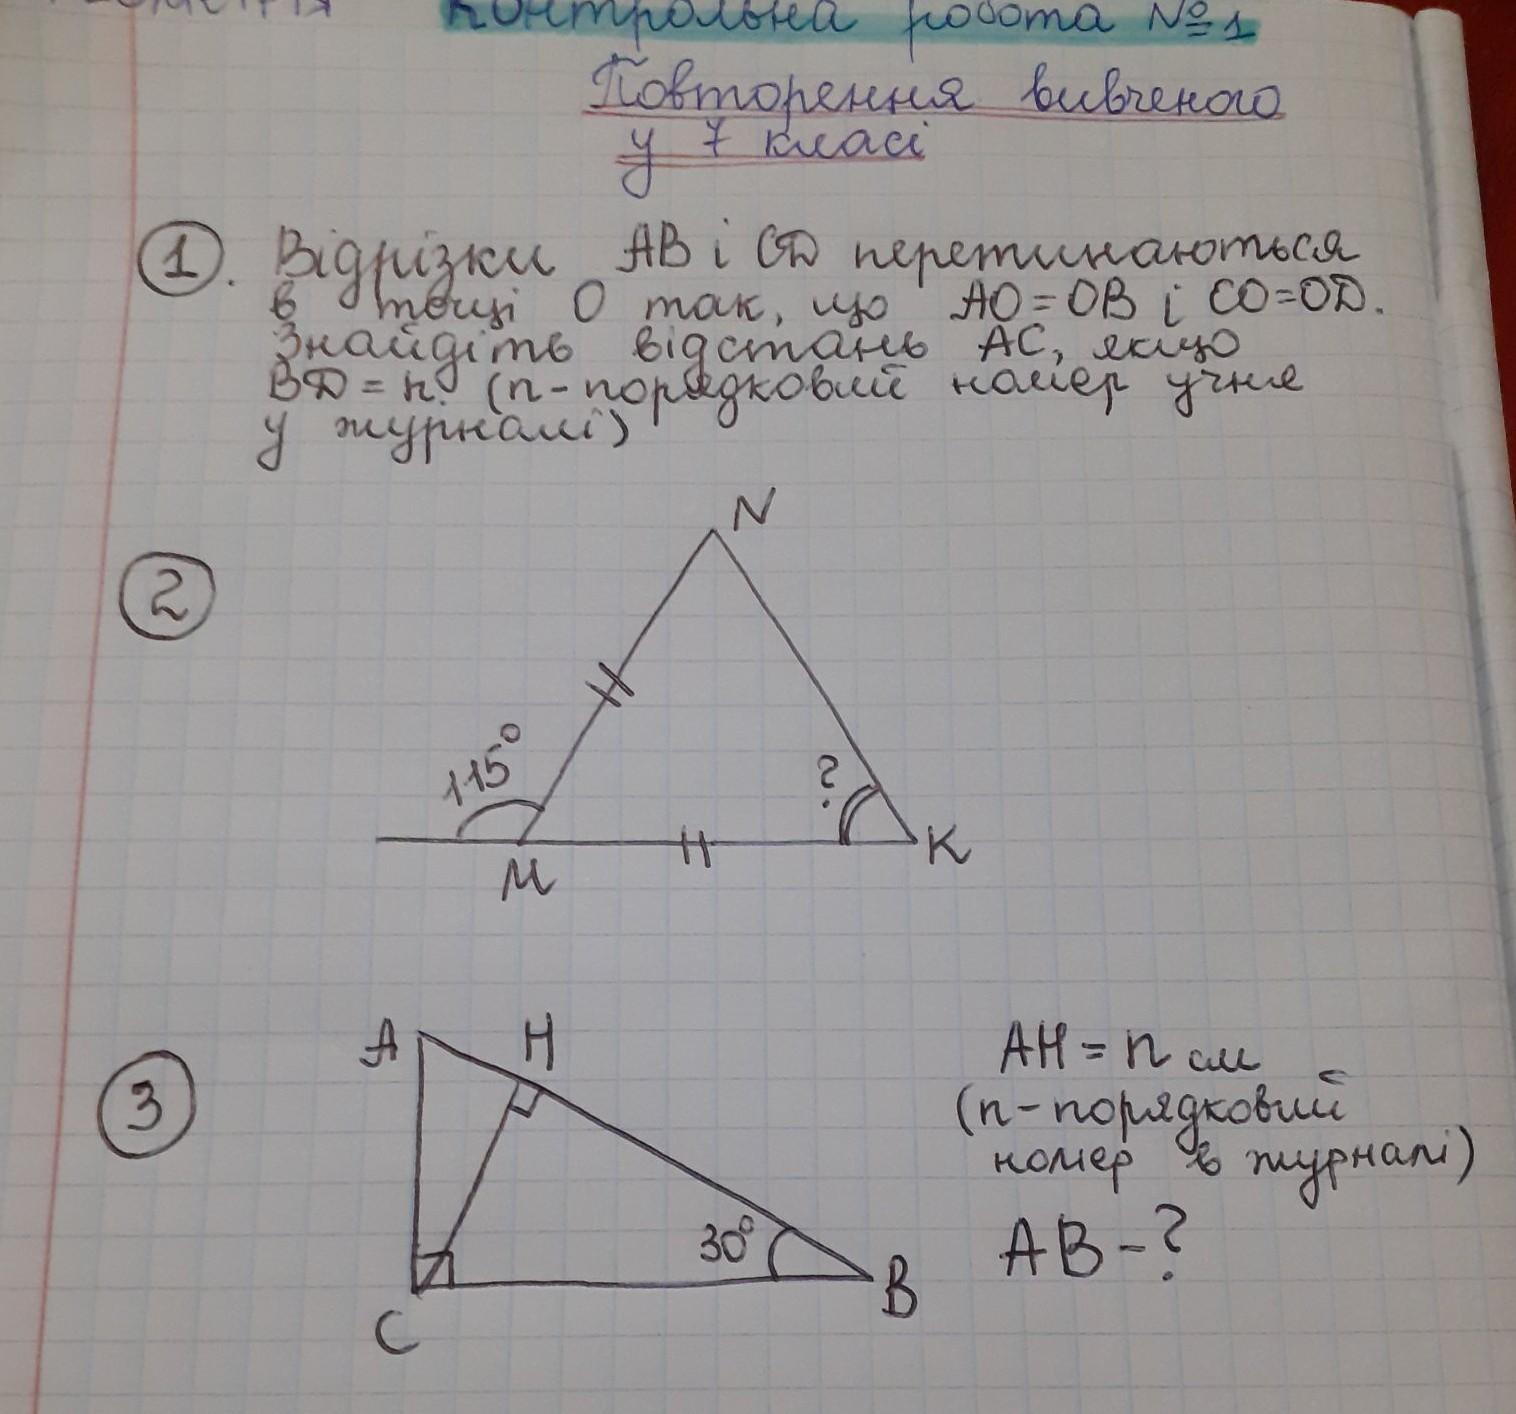 Контрольна робота №1
Повторення вивченого
у 7 класі
1. Відрізки AB і CD перетинаються
в точці O так, що AO=OB і CO=OD.
Знайдіть відстань AC, якщо
BD = n. (n-порядковий номер учня
у журналі)
N
2
115°
?
M
K
A
H
AH = n см
3
(n-порядковий
номер в журналі)
30°
AB - ?
B
C